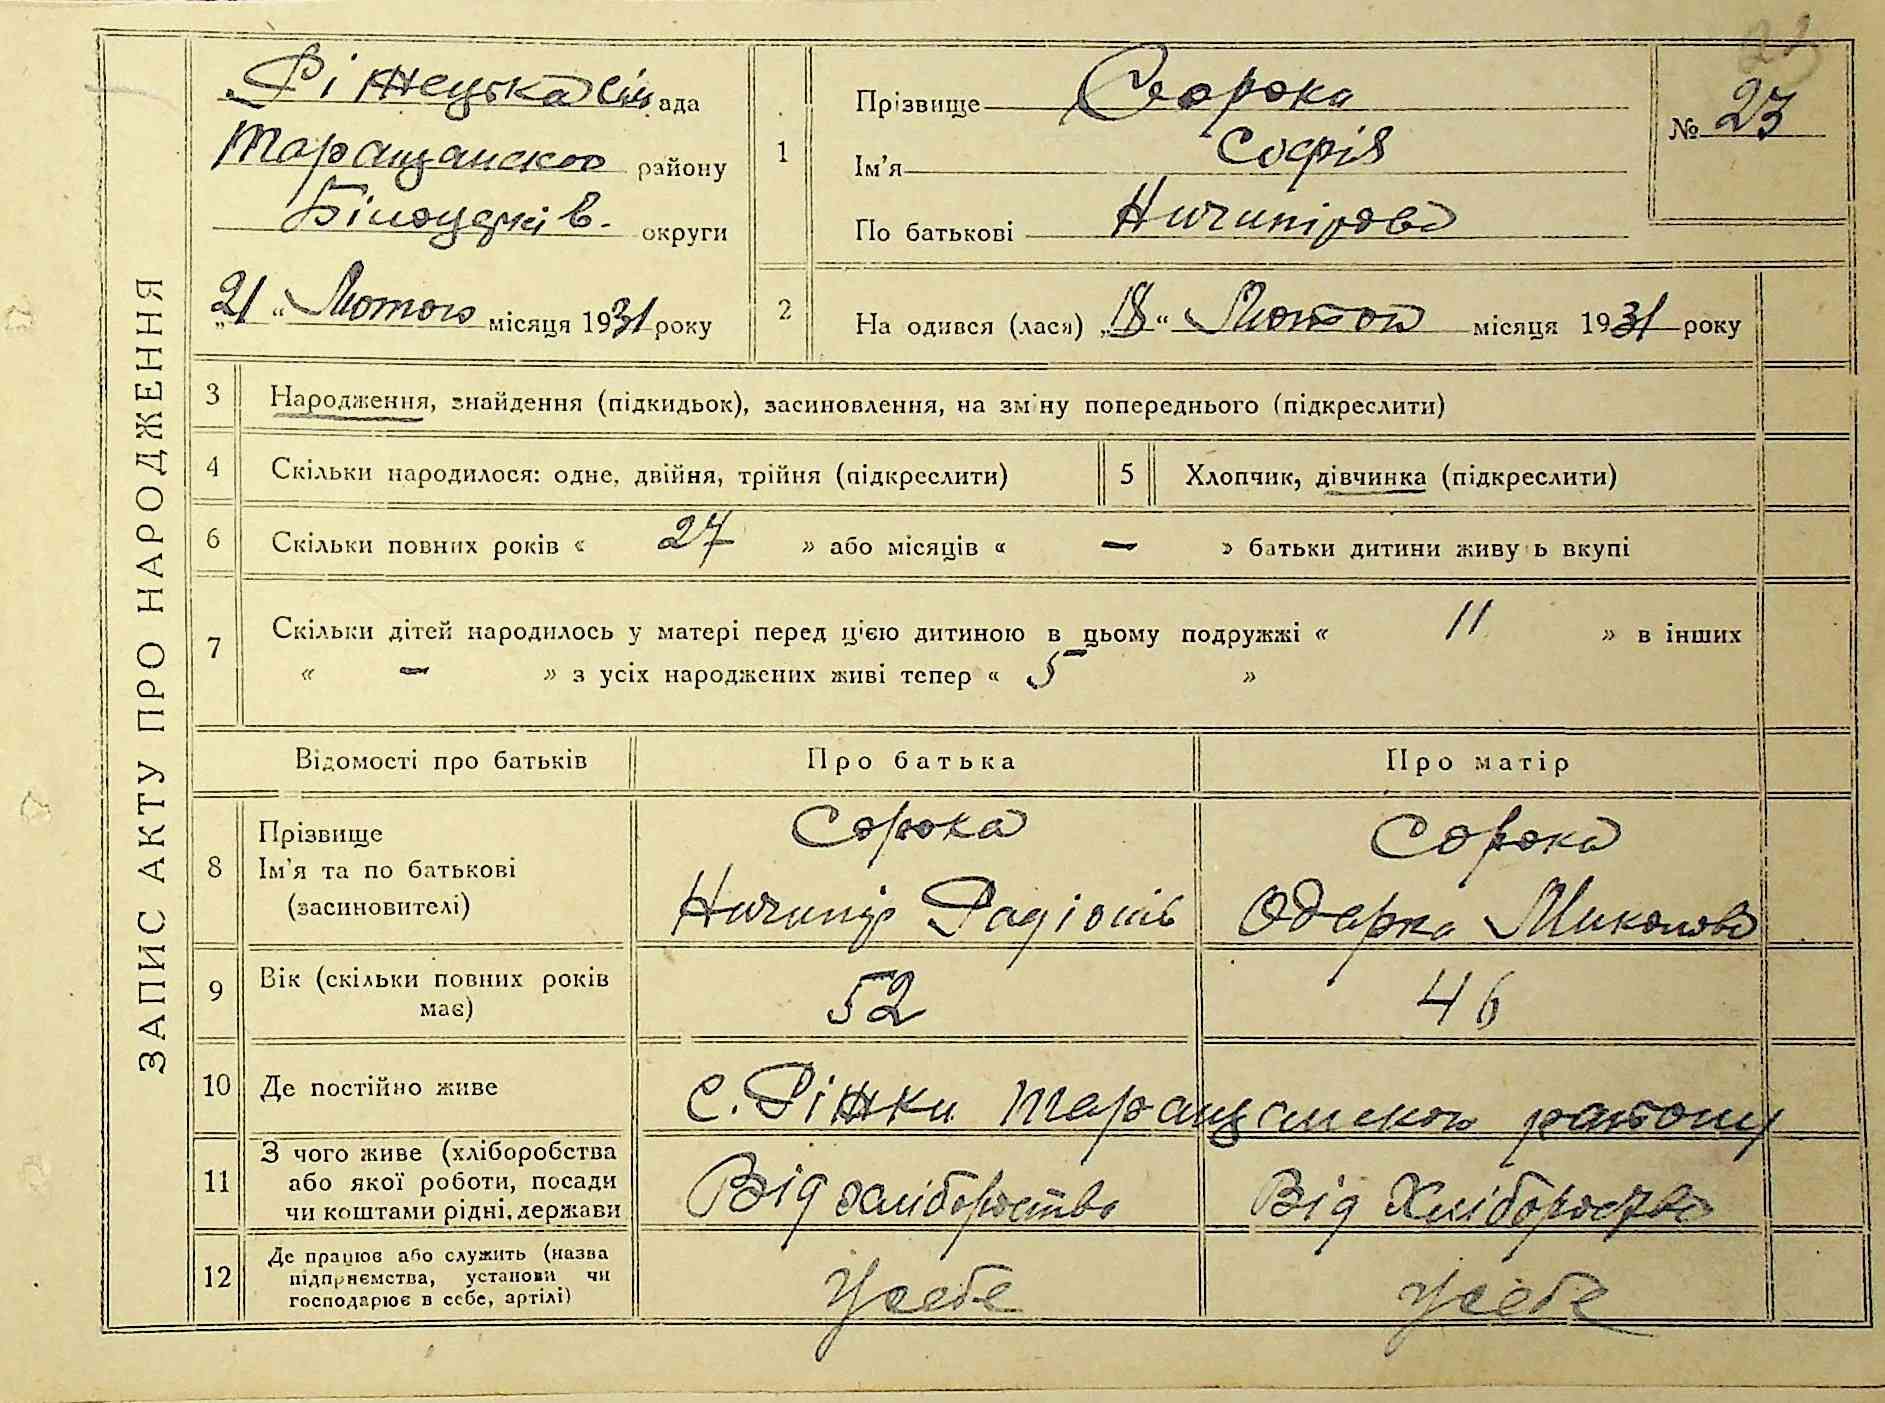 ЗАПИС АКТУ ПРО НАРОДЖЕННЯ
Ріжецька сіль ада
Таращанского району
Білоцерків. округи
„21“ Лютого місяця 1931 року
1
Прізвище Сорока
Ім'я Софія
По батькові Ничипірова
№ 23
2
На одився (лася) „18“ Лютого місяця 1931 року
3 Народження, знайдення (підкидьок), засиновлення, на зміну попереднього (підкреслити)
4 Скільки народилося: одне, двійня, трійня (підкреслити) 5 Хлопчик, дівчинка (підкреслити)
6 Скільки повних років « 27 » або місяців « — » батьки дитини живу ь вкупі
7 Скільки дітей народилось у матері перед цією дитиною в цьому подружжі « 11 » в інших
« — » з усіх народжених живі тепер « 5 »
Відомості про батьків Про батька Про матір
8 Прізвище
Ім'я та по батькові
(засиновителі)
Сорока
Ничипір Радіонів
Сорока
Одарка Миколова
9 Вік (скільки повних років
має)
52 46
10 Де постійно живе с. Ріжки Таращанского району
11 З чого живе (хліборобства
або якої роботи, посади
чи коштами рідні, держави
Від хлібороства Від Хлібороства
12 Де працює або служить (назва
підприємства, установи чи
господарює в себе, артілі)
У себе У себе